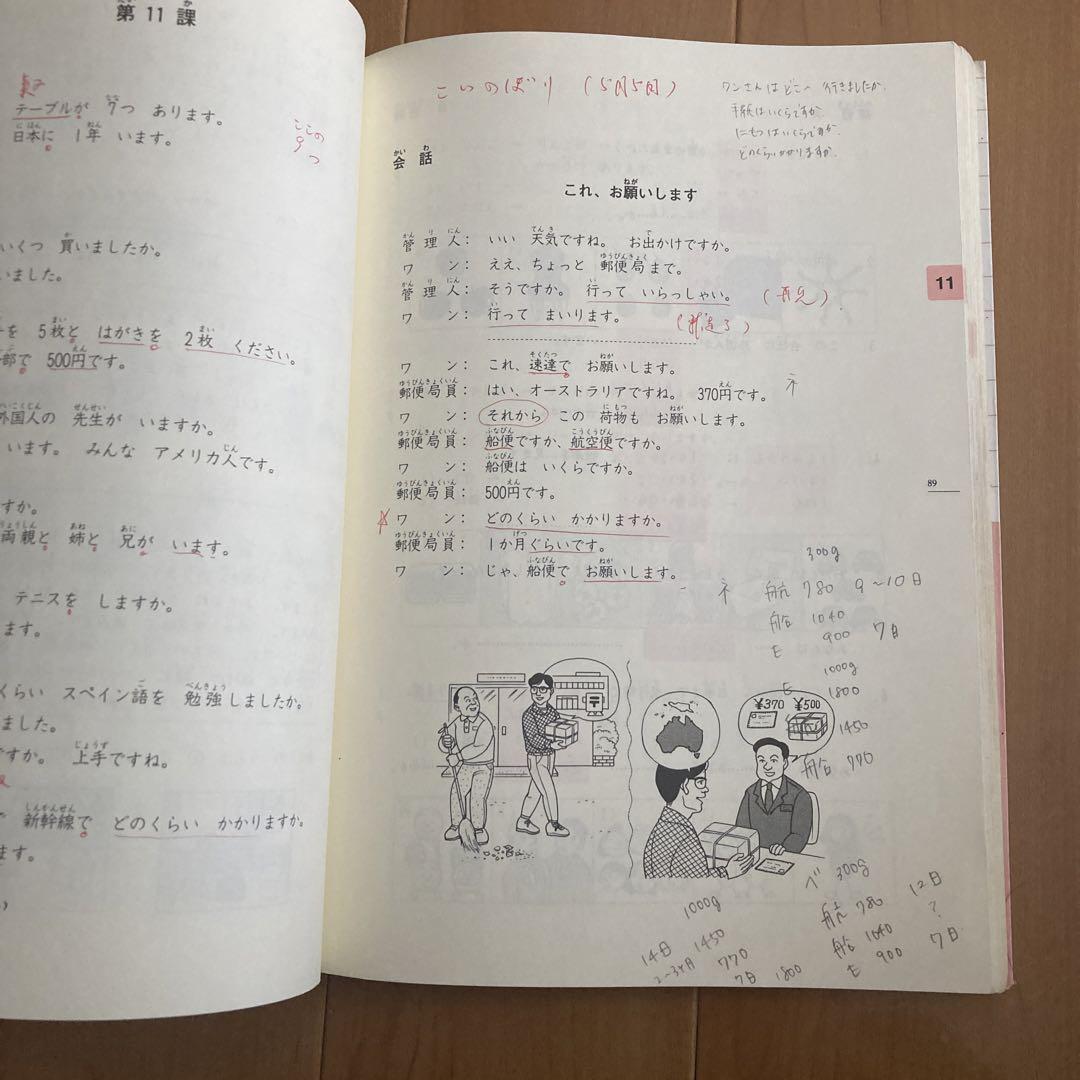 第 11 課
テーブルが 7つ あります。
日本に 1年 います。
ここの
9つ
いくつ 買いましたか。
いました。
を 5枚と はがきを 2枚 ください。
部で 500円です。
外国人の 先生が いますか。
います。 みんな アメリカ人です。
すか。
両親と 姉と 兄が います。
テニスを しますか。
ます。
くらい スペイン語を 勉強しましたか。
ました。
ですか。 上手ですね。
新幹線で どのくらい かかりますか。
ます。
こいのぼり (5月5日)
ワンさんは どこへ 行きましたか
手紙は いくらですか
にもつは いくらですか
どのくらい かかりますか
会話
これ、お願いします
管理人: いい 天気ですね。 お出かけですか。
ワン: ええ、ちょっと 郵便局まで。
管理人: そうですか。 行って いらっしゃい。
ワン: 行って まいります。
ワン: これ、速達で お願いします。
郵便局員: はい、オーストラリアですね。 370円です。
ネ
ワン: それから この 荷物も お願いします。
郵便局員: 船便ですか、航空便ですか。
ワン: 船便は いくらですか。
郵便局員: 500円です。
ワン: どのくらい かかりますか。
郵便局員: 1か月ぐらいです。
ワン: じゃ、船便で お願いします。
11
89
300g
ネ 航 780 9~10日
船 1040
E 900 7日
1000g
E 1800
1450
船 770
¥370 ¥500
ベ 300g
航 780 12日
船 1040 ?
E 900 7日
1000g
14日 1450
2~3ヶ月 770
7日 1800